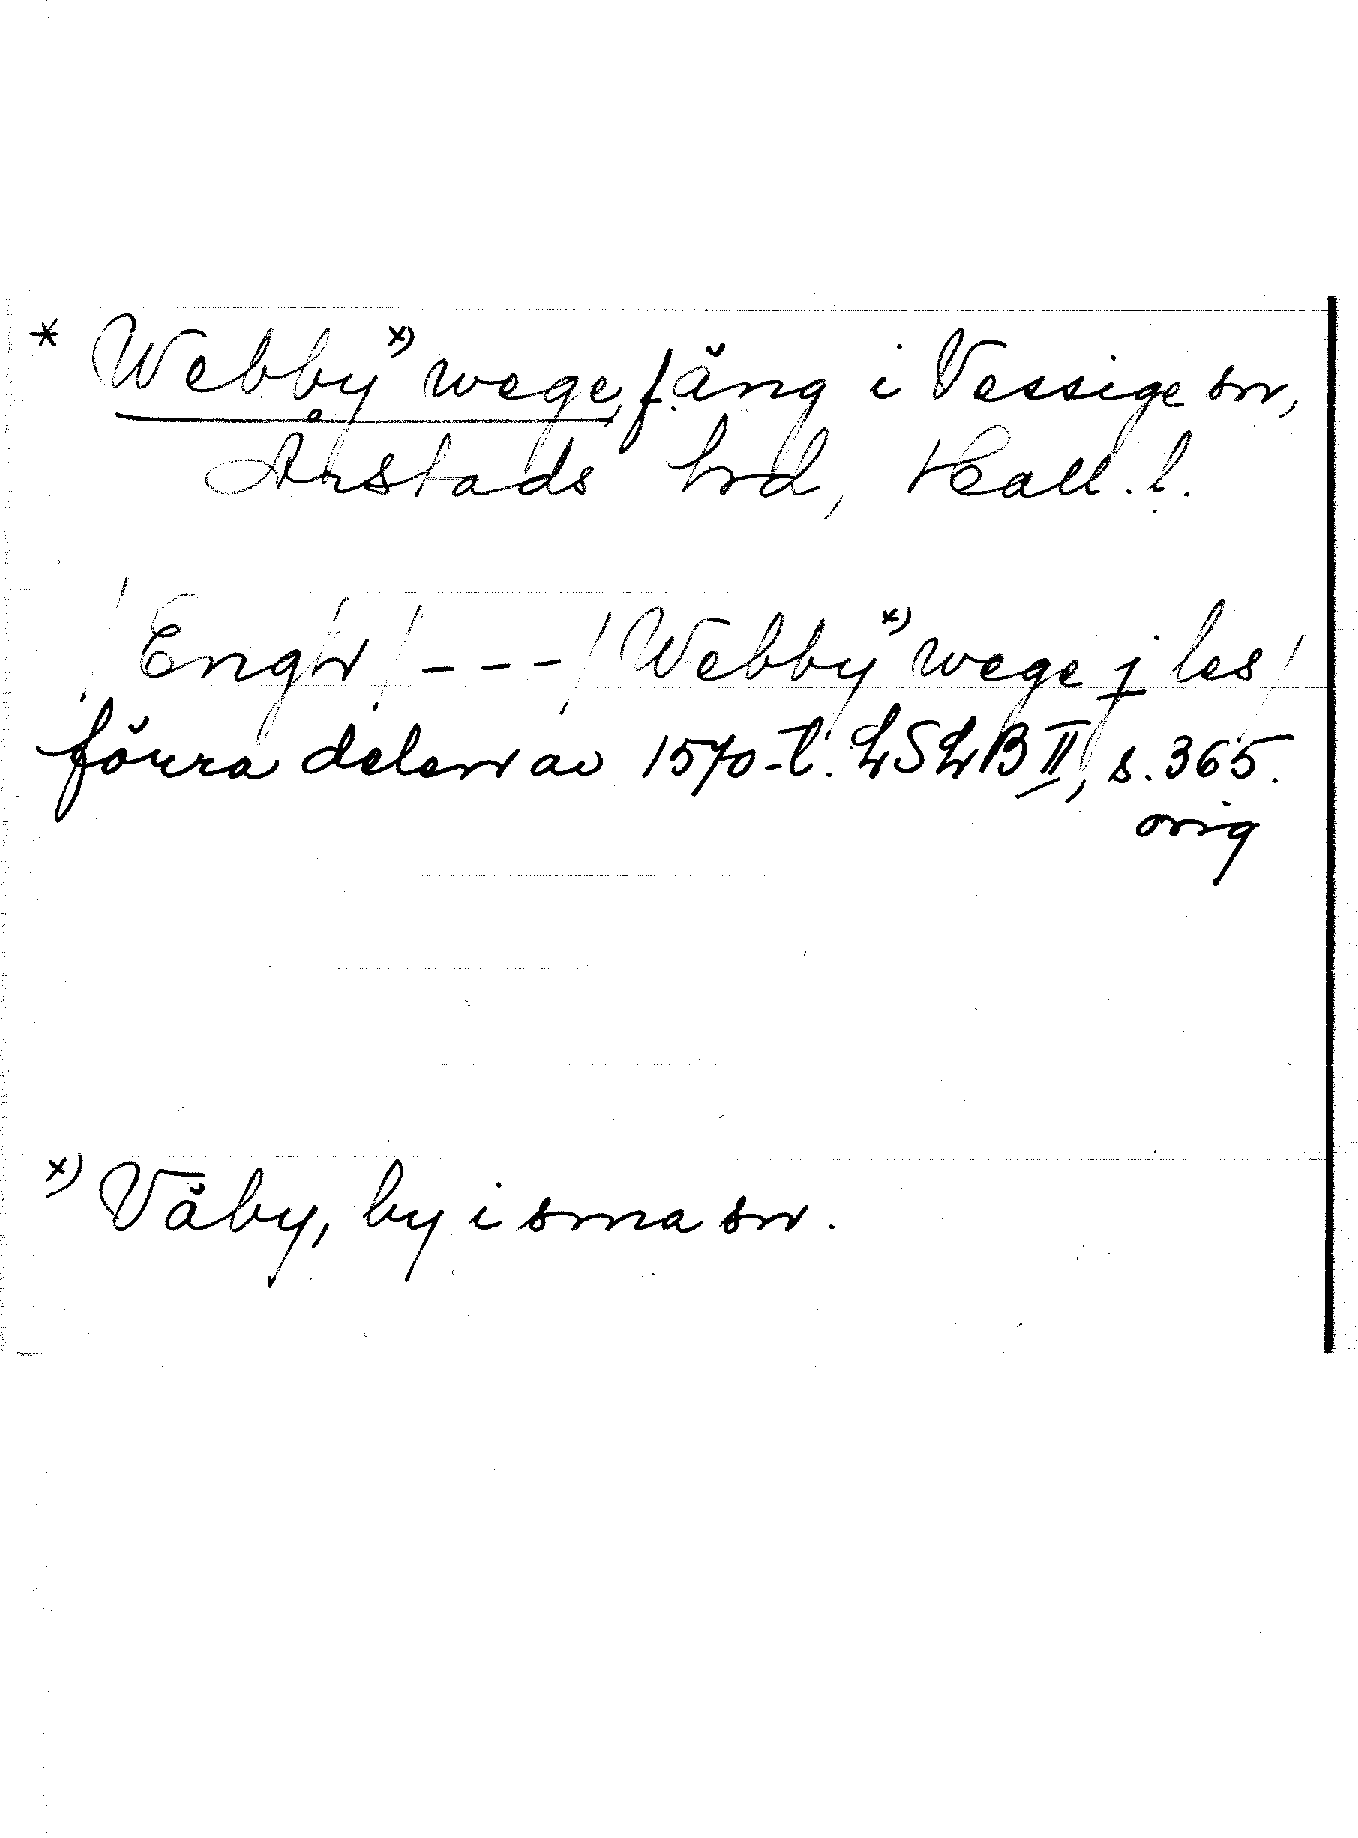 * Webby x) wege, f. äng i Vessige sn,
Årstads hrd, Hall. l.
/Engh/ --- / Webby x) wege j les/
förra delen av 1570-t. LSLB II, s. 365.
orig
x) Våby, by i sma sn.